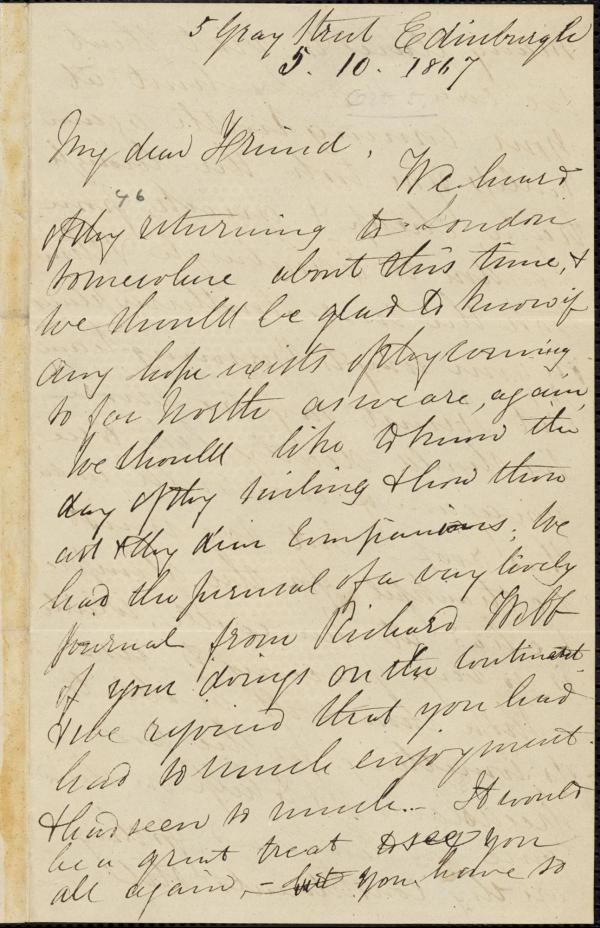 5 Gray Street Edinburgh
5. 10. 1867
Oct. 5.
My dear Friend,
We heard
46
of thy returning to London
somewhere about this time, &
we should be glad to know if
any hope exists of thy coming
so far North as we are, again,
We should like to know the
day of thy sailing & how thou
art & thy dear Companions; We
had the perusal of a very lively
Journal from Richard Webb
of your doings on the Continent
& we rejoiced that you had
had so much enjoyment
& had seen so much. – It would
be a great treat to see you
all again, – but you have so